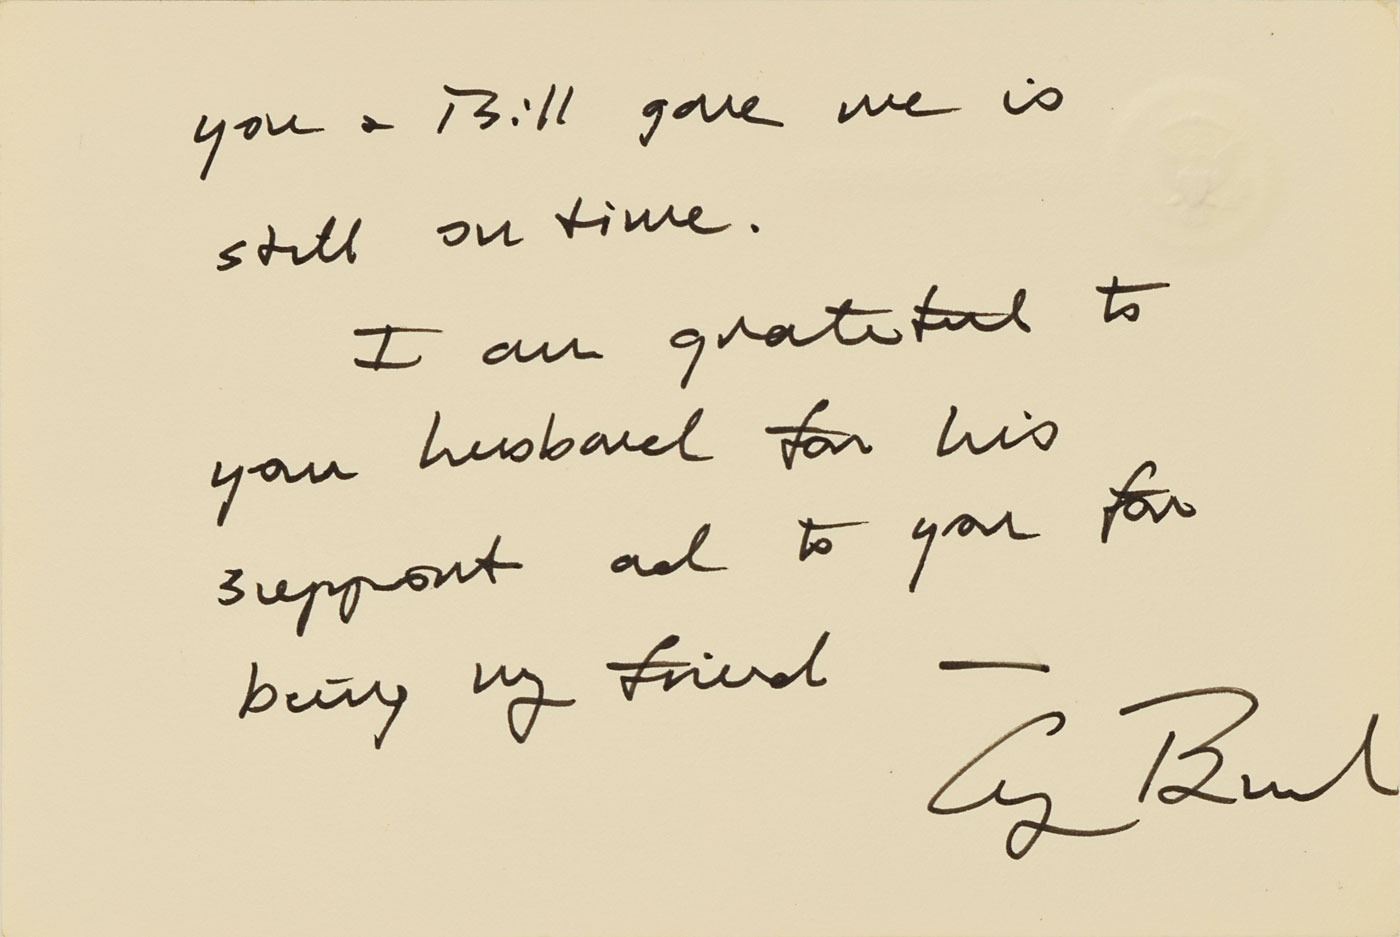 you & Bill gave me is
still on time.
I am grateful to
your husband for his
support ad to you for
being my friend —
Bush